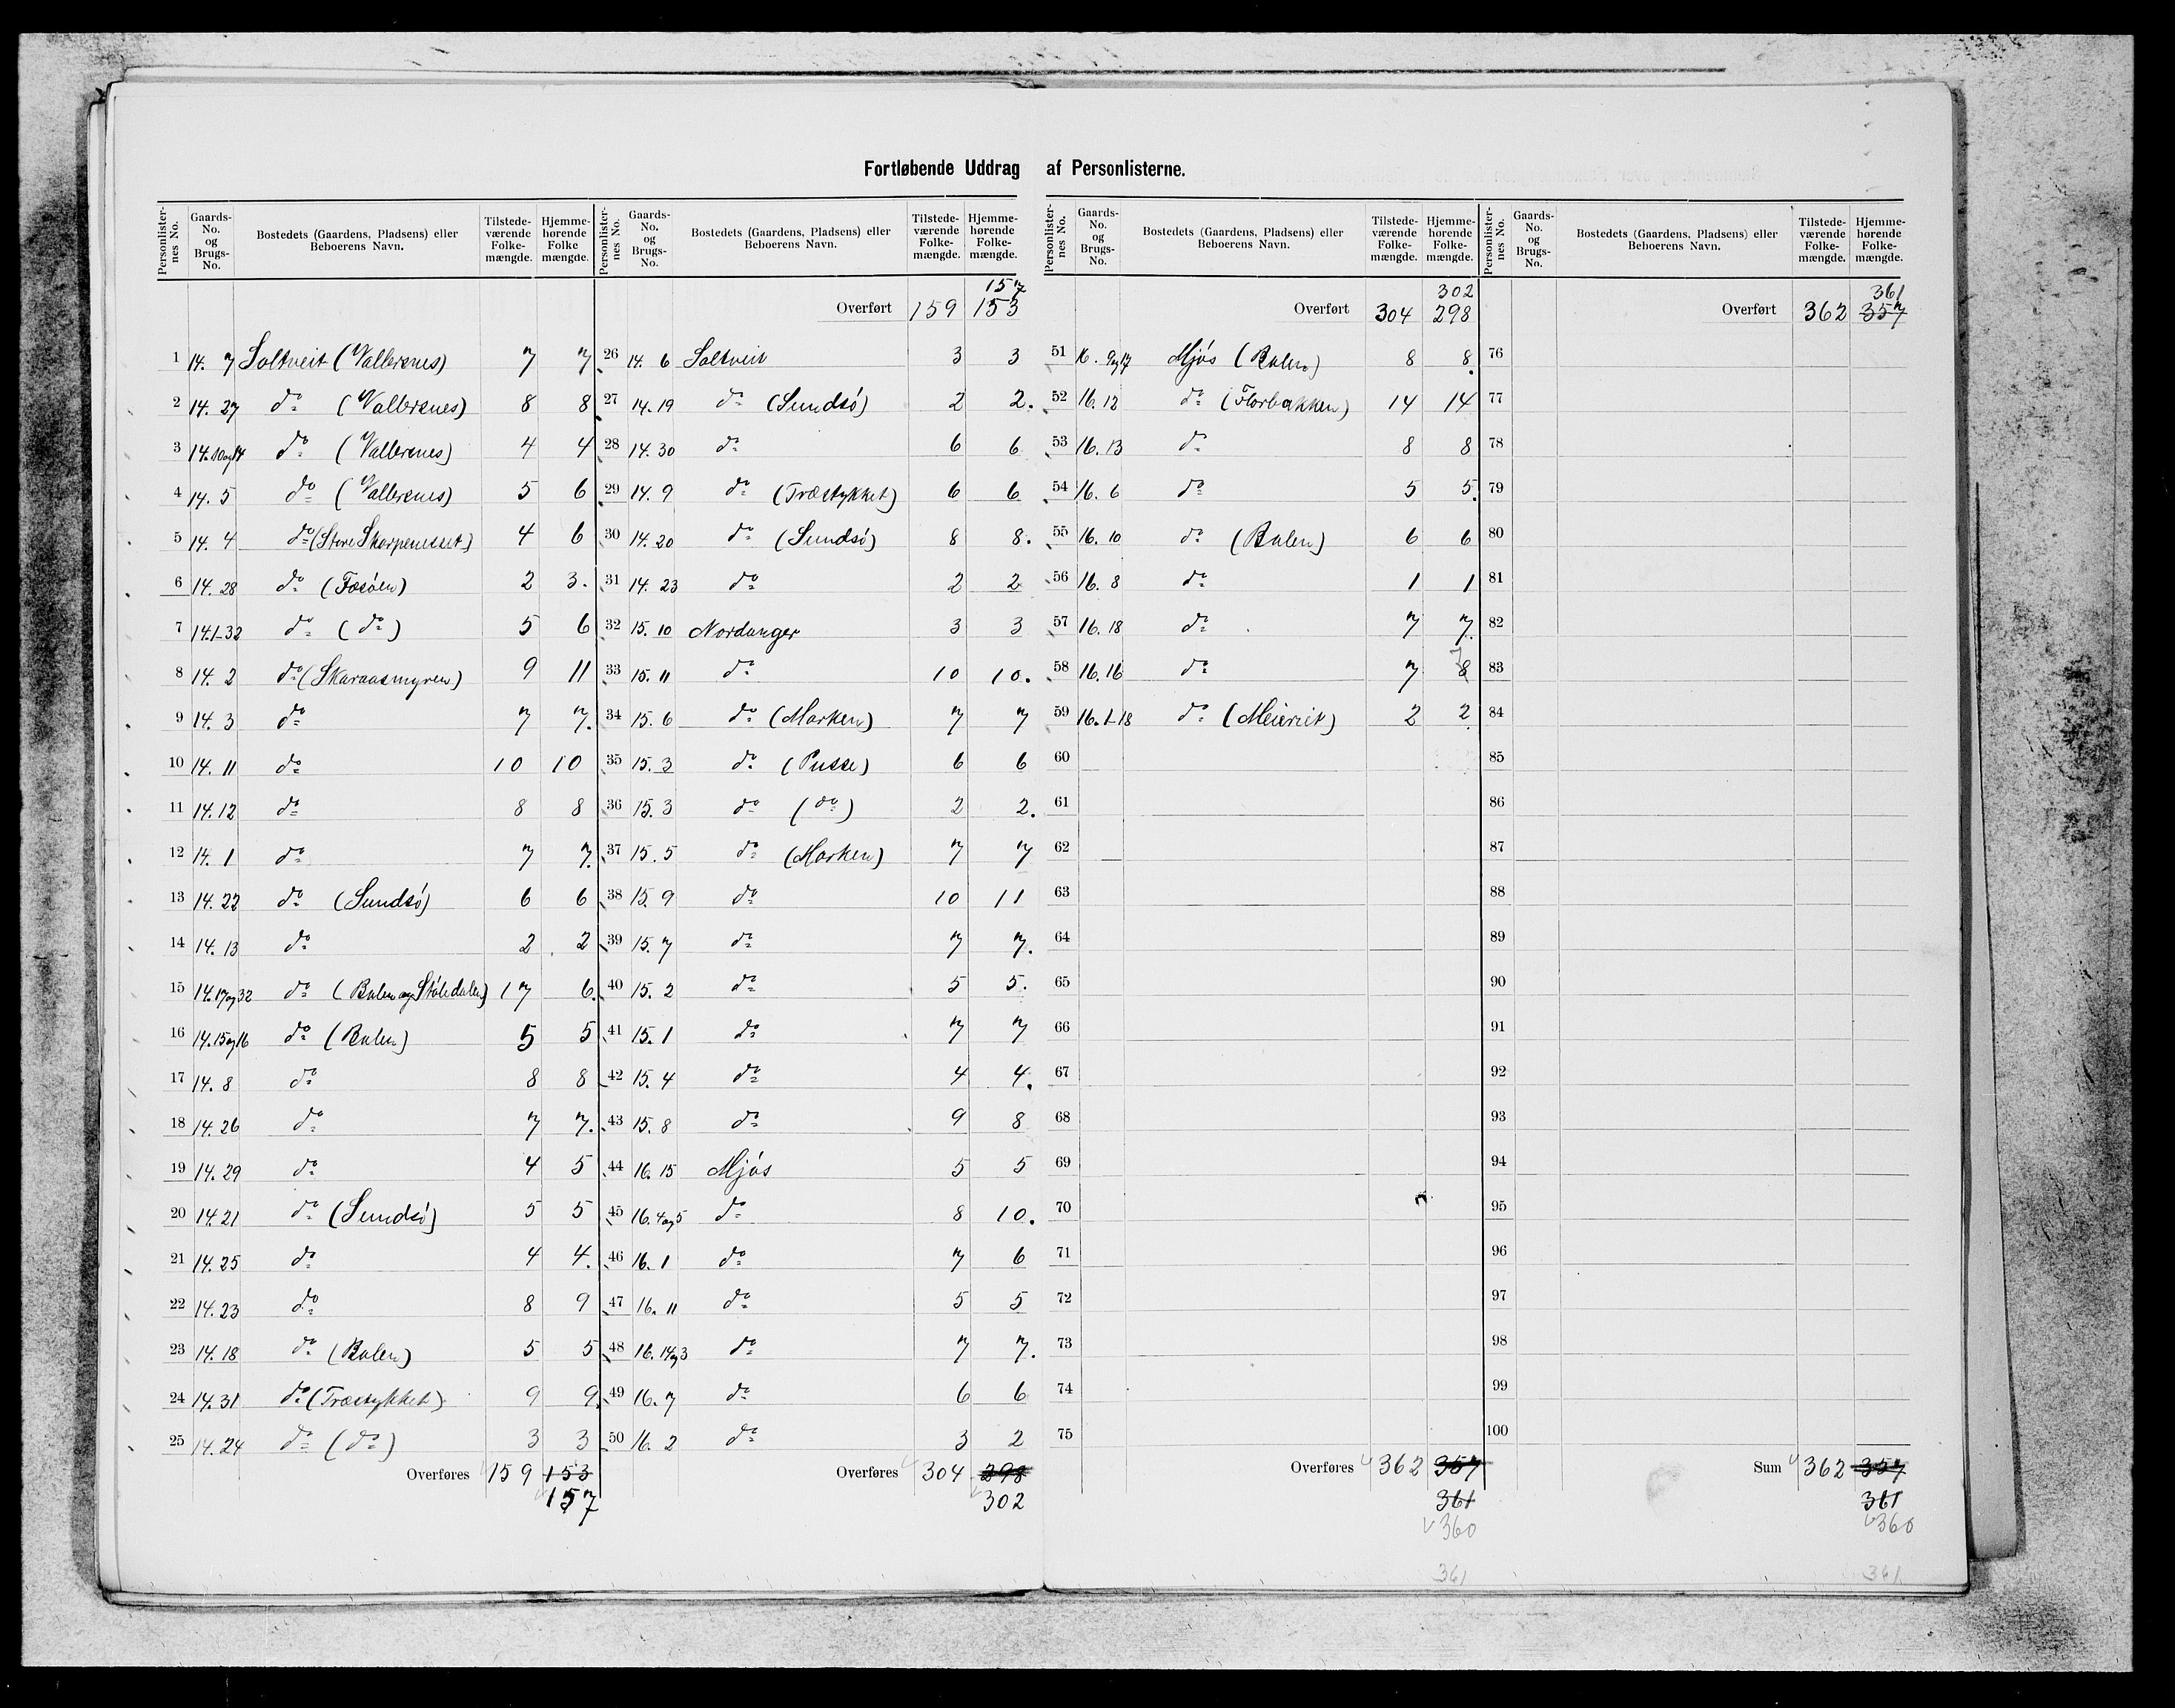 Fortløbende Uddrag af Personlisterne.
Personlister-nes No. | Gaards-No. og Brugs-No. | Bostedets (Gaardens, Pladsens) eller Beboerens Navn. | Tilstede-værende Folke-mængde. | Hjemme-hørende Folke mængde.
1 14. 7 Soltveit (Vallersnes) 7 7
2 14. 27 do (Vallersnes) 8 8
3 14. 10 og 14 do (Vallersnes) 4 4
4 14. 5 do (Vallersnes) 5 6
5 14. 4 do (Store Skarpenesset) 4 6
6 14. 28 do (Fosöen) 2 3.
7 14.1-32 do (do) 5 6
8 14. 2 do (Skaraasmyren) 9 11
9 14. 3 do 7 7.
10 14. 11 do 10 10
11 14. 12 do 8 8
12 14. 1 do 7 7.
13 14. 22 do (Sundsö) 6 6
14 14. 13 do 2 2
15 14. 17 og 32 do (Balen og Stöledalen) 17 6.
16 14. 15 og 16 do (Balen) 5 5
17 14. 8 do 8 8
18 14. 26 do 7 7.
19 14. 29 do 4 5
20 14. 21 do (Sundsö) 5 5
21 14. 25 do 4 4.
22 14. 23 do 8 9
23 14. 18 do (Balen) 5 5
24 14. 31 do (Træstykket) 9 9
25 14. 24 do (do) 3 3
Overføres 159 153
157
Personlister-nes No. | Gaards-No. og Brugs-No. | Bostedets (Gaardens, Pladsens) eller Beboerens Navn. | Tilstede-værende Folke-mængde. | Hjemme-hørende Folke-mængde.
157
Overført 159 153
26 14. 6 Soltveit 3 3
27 14. 19 do (Sundsö) 2 2.
28 14. 30 do 6 6
29 14. 9 do (Træstykket) 6 6
30 14. 20 do (Sundsö) 8 8.
31 14. 23 do 2 2
32 15. 10 Nordanger 3 3
33 15. 11 do 10 10.
34 15. 6 do (Marken) 7 7
35 15. 3 do (Pusse) 6 6
36 15. 3 do (do) 2 2.
37 15. 5 do (Marken) 7 7
38 15. 9 do 10 11
39 15. 7 do 7 7.
40 15. 2 do 5 5.
41 15. 1 do 7 7
42 15. 4 do 4 4.
43 15. 8 do 9 8
44 16. 15 Mjös 5 5
45 16. 4 og 5 do 8 10.
46 16. 1 do 7 6
47 16. 11 do 5 5
48 16. 14 og 3 do 7 7.
49 16. 7 do 6 6
50 16. 2 do 3 2
Overføres 304 298
302
Personlister-nes No. | Gaards-No. og Brugs-No. | Bostedets (Gaardens, Pladsens) eller Beboerens Navn. | Tilstede-værende Folke-mængde. | Hjemme-hørende Folke-mængde.
302
Overført 304 298
51 16. 9 og 17 Mjös (Balen) 8 8.
52 16. 12 do (Florbakken) 14 14
53 16. 13 do 8 8
54 16. 6 do 5 5.
55 16. 10 do (Balen) 6 6
56 16. 8 do 1 1
57 16. 18 do 7 7.
58 16. 16 do 7 8 7
59 16. 1-18 do (Meieriet) 2 2
60
61
62
63
64
65
66
67
68
69
70
71
72
73
74
75
Overføres 362 357
361
360
361
Personlister-nes No. | Gaards-No. og Brugs-No. | Bostedets (Gaardens, Pladsens) eller Beboerens Navn. | Tilstede-værende Folke-mængde. | Hjemme-hørende Folke-mængde.
361
Overført 362 357
76
77
78
79
80
81
82
83
84
85
86
87
88
89
90
91
92
93
94
95
96
97
98
99
100
Sum 362 357
361
360
361